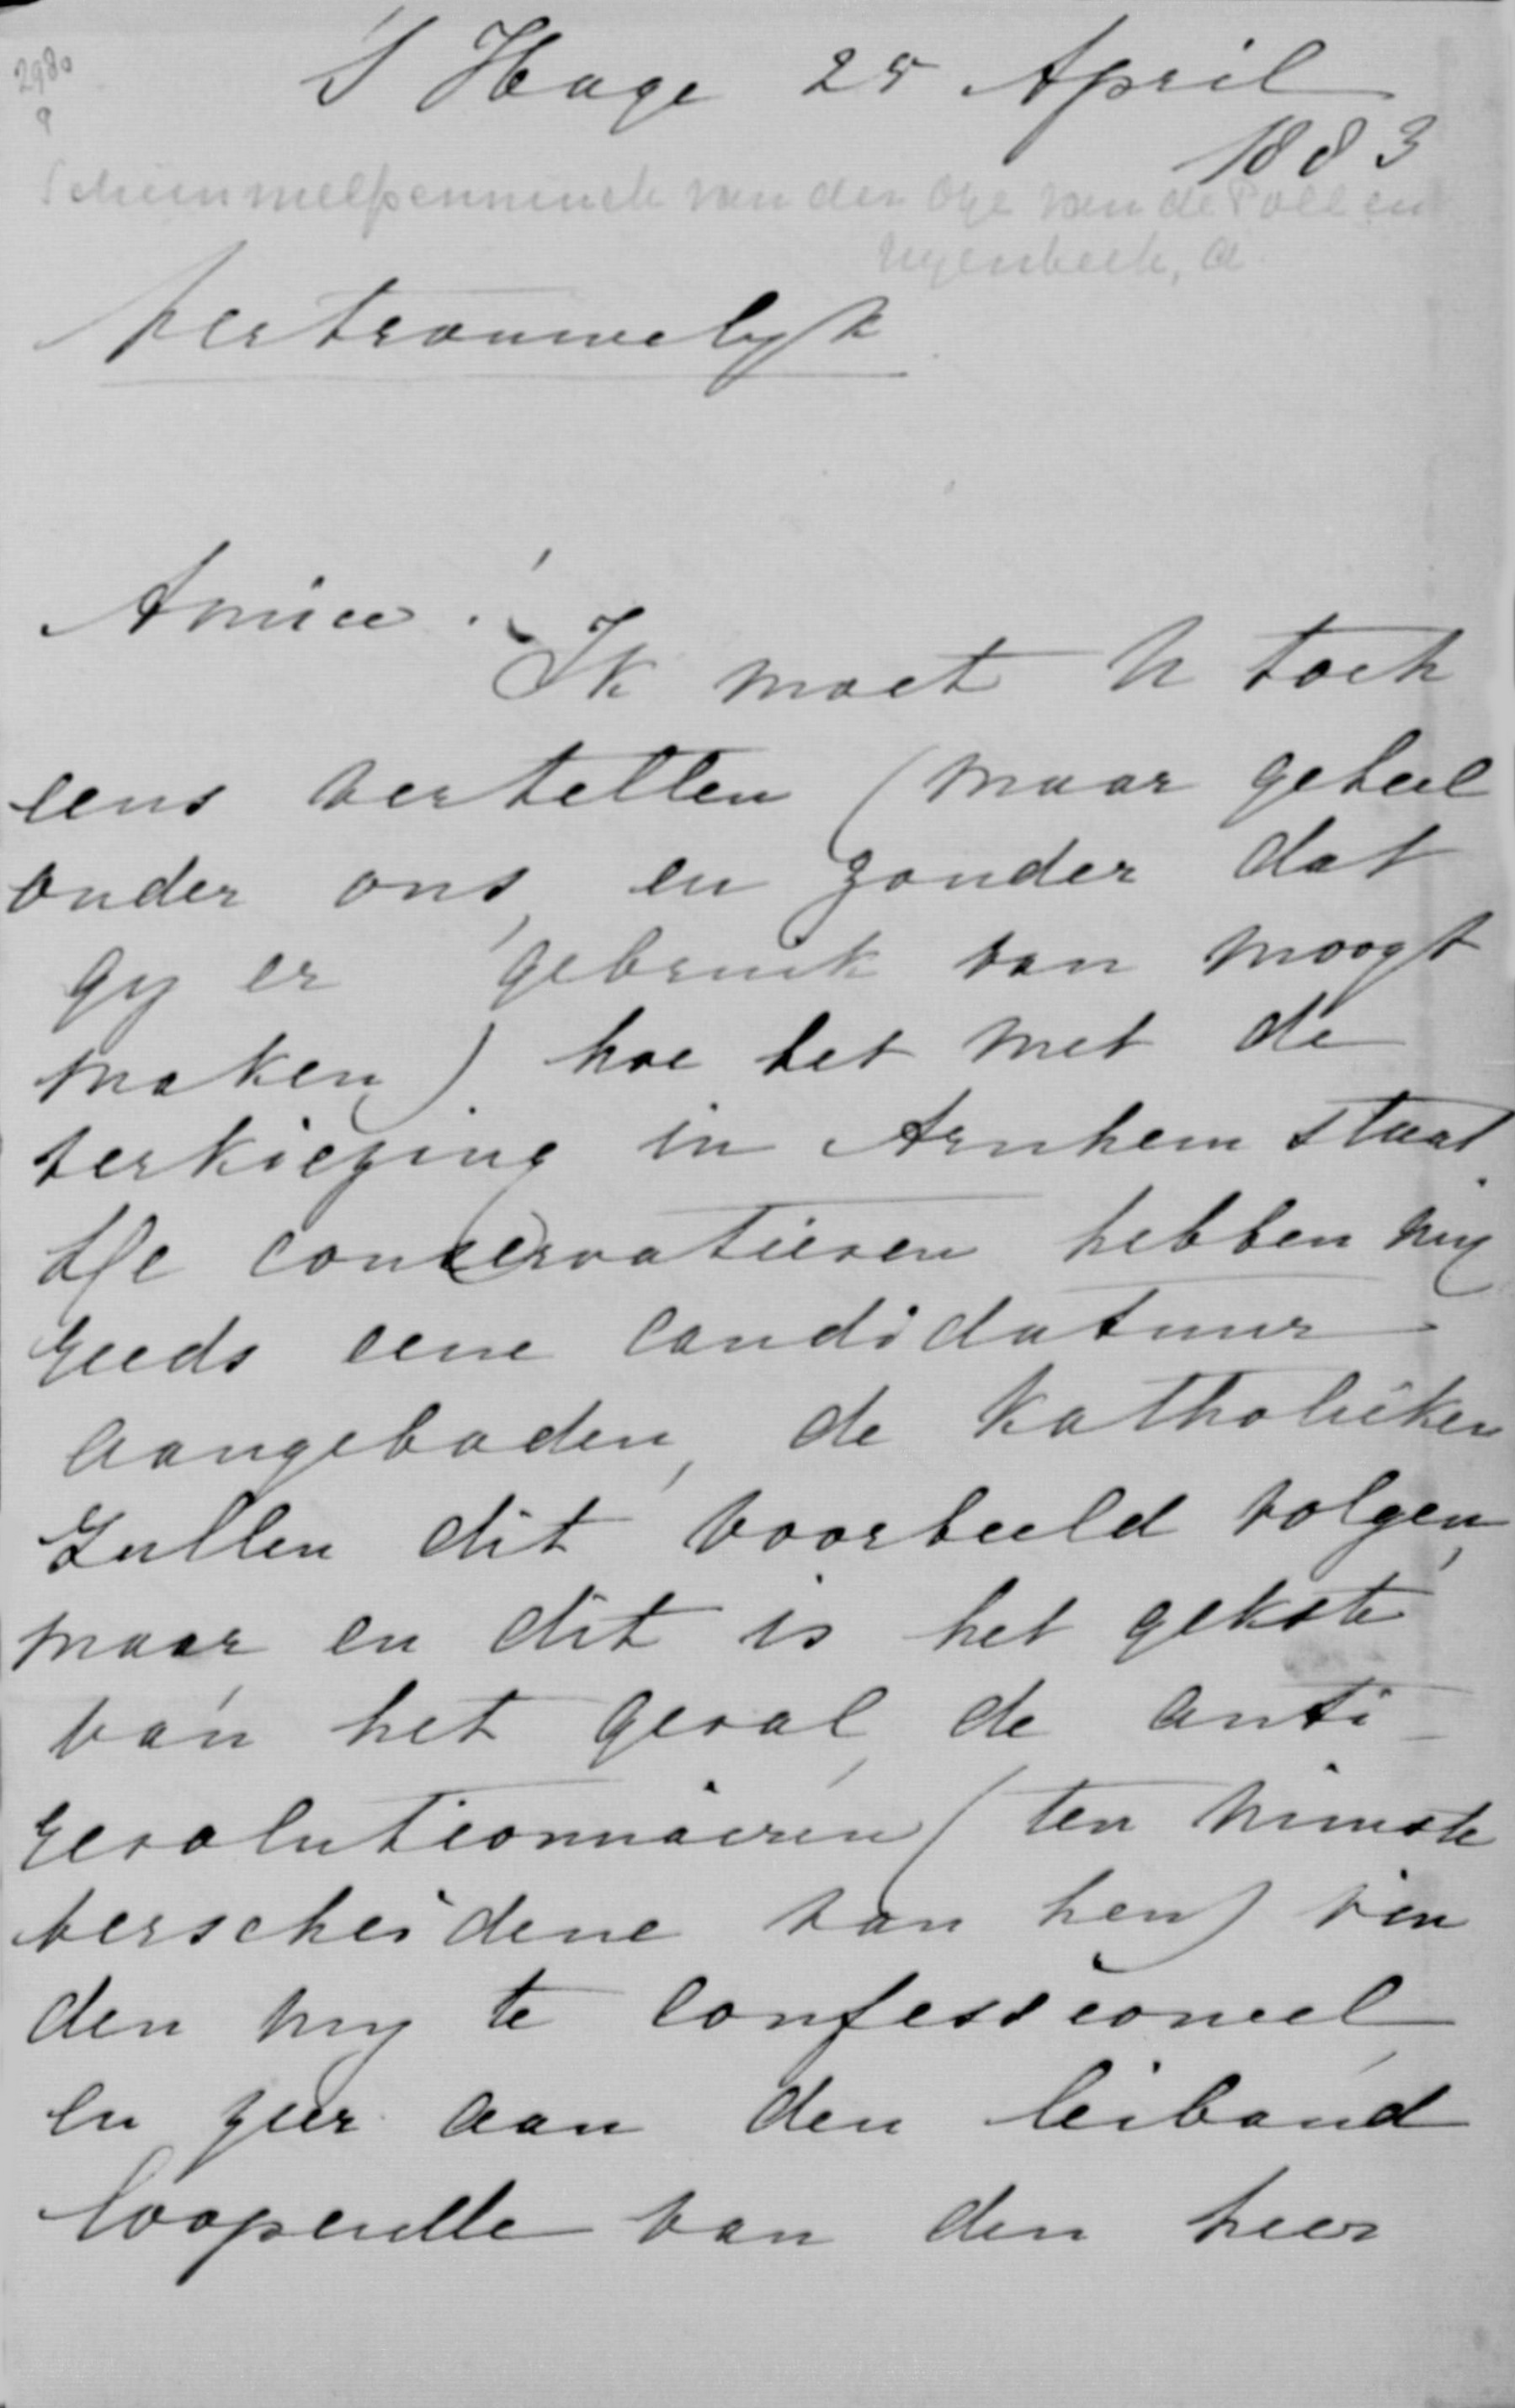 2980
9
'S Hage 25 April
1883
Schimmelpenninck van der Oye van de Poll en
Nyenbeek, A.
Vertrouwelyk
Amice!
Ik moet U toch
eens vertellen (maar geheel
onder ons, en zonder dat
gy er gebruik van moogt
maken) hoe het met de
verkiezing in Arnhem staat.
De conservatieven hebben my
reeds eene candidatuur
aangeboden, de Katholieken
zullen dit voorbeeld volgen,
maar en dit is het gekste
van het geval, de anti-
revolutionnairen (ten minste
verscheidene van hen) vin
den my te confessioneel,
en zeer aan den leiband
loopende van den heer